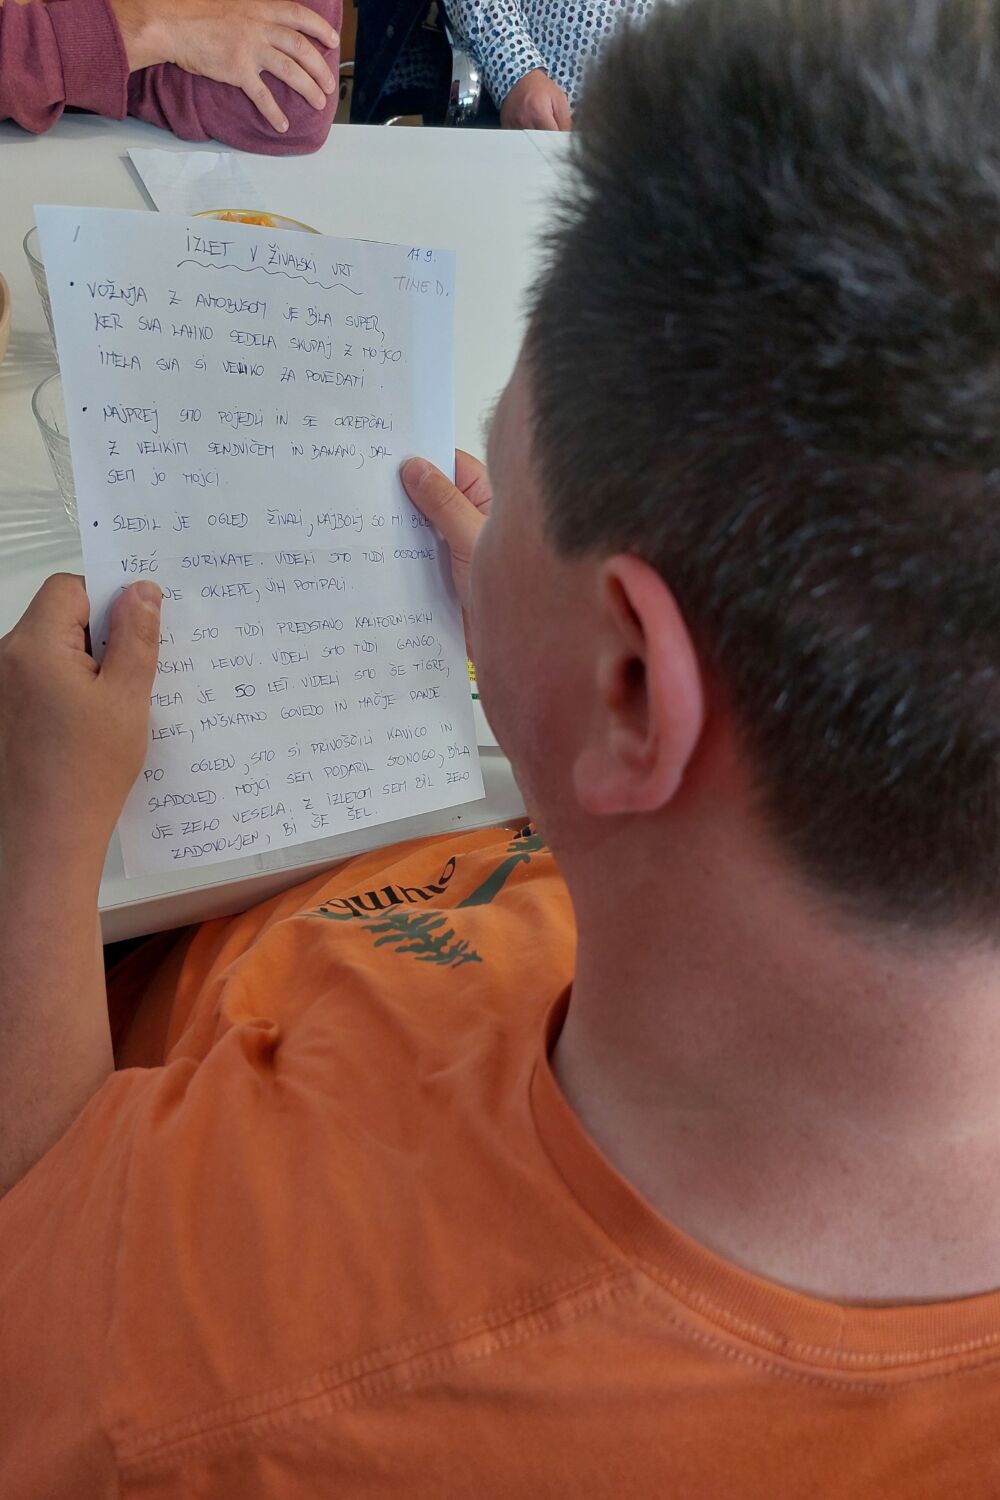 IZLET V ŽIVALSKI VRT
17.9.
TINE D.
• VOŽNJA Z AVTOBUSOM JE BILA SUPER,
KER SVA LAHKO SEDELA SKUPAJ Z MOJCO.
IMELA SVA SI VELIKO ZA POVEDATI.
• NAJPREJ SMO POJEDLI IN SE OKREPČALI
Z VELIKIM SENDVIČEM IN BANANO, DAL
SEM JO MOJCI.
• SLEDIL JE OGLED ŽIVALI, NAJBOLJ SO MI BILE
VŠEČ SURIKATE. VIDELI SMO TUDI OGROMNE
OKLEPE, JIH POTIPALI.
SMO TUDI PREDSTAVO KALIFORNIJSKIH
LEVOV. VIDELI SMO TUDI GANGO,
JE 50 LET. VIDELI SMO ŠE TIGRE,
LEVE, MUŠKATNO GOVEDO IN MAČJE PANDE.
PO OGLEDU, SMO SI PRIVOŠČILI KAVICO IN
SLADOLED. MOJCI SEM PODARIL STONOGO, BILA
JE ZELO VESELA. Z IZLETOM SEM BIL ZELO
ZADOVOLJEN, BI ŠE ŠEL.